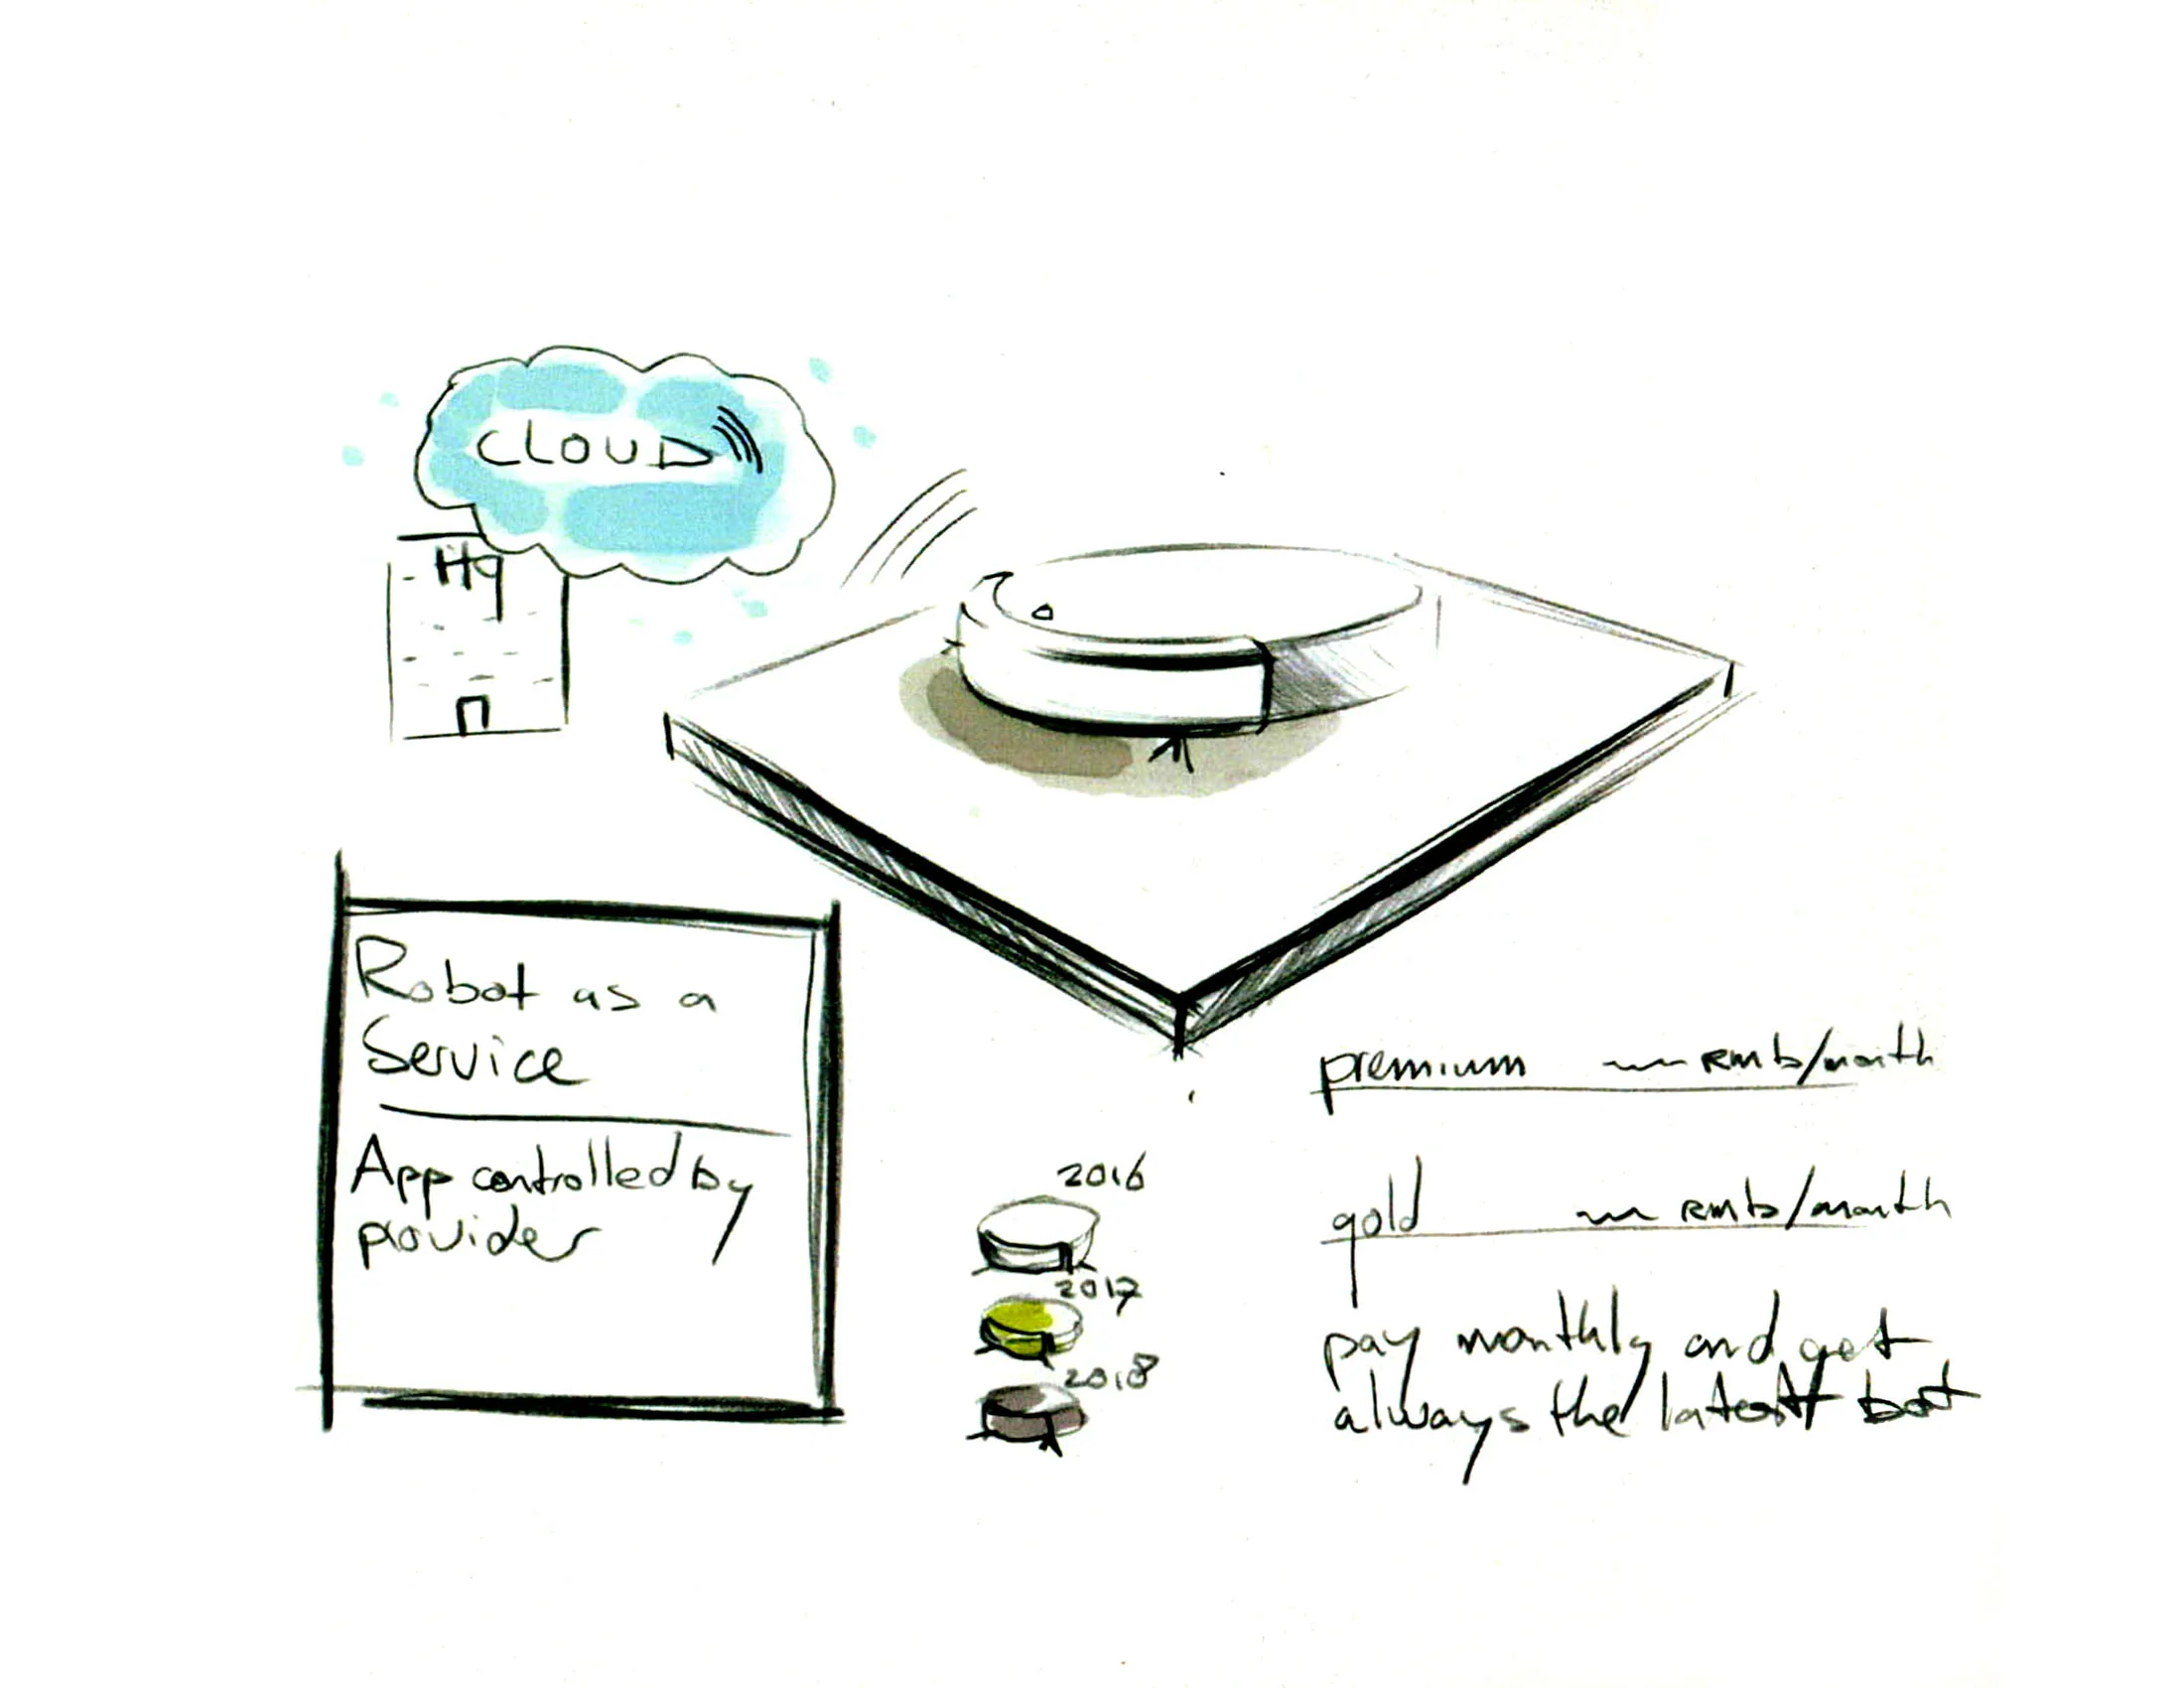 CLOUD
Hq
Robot as a
Service
App controlled by
provider
2016
2017
2018
premium rmb/month
gold rmb/month
pay monthly and get
always the latest bot